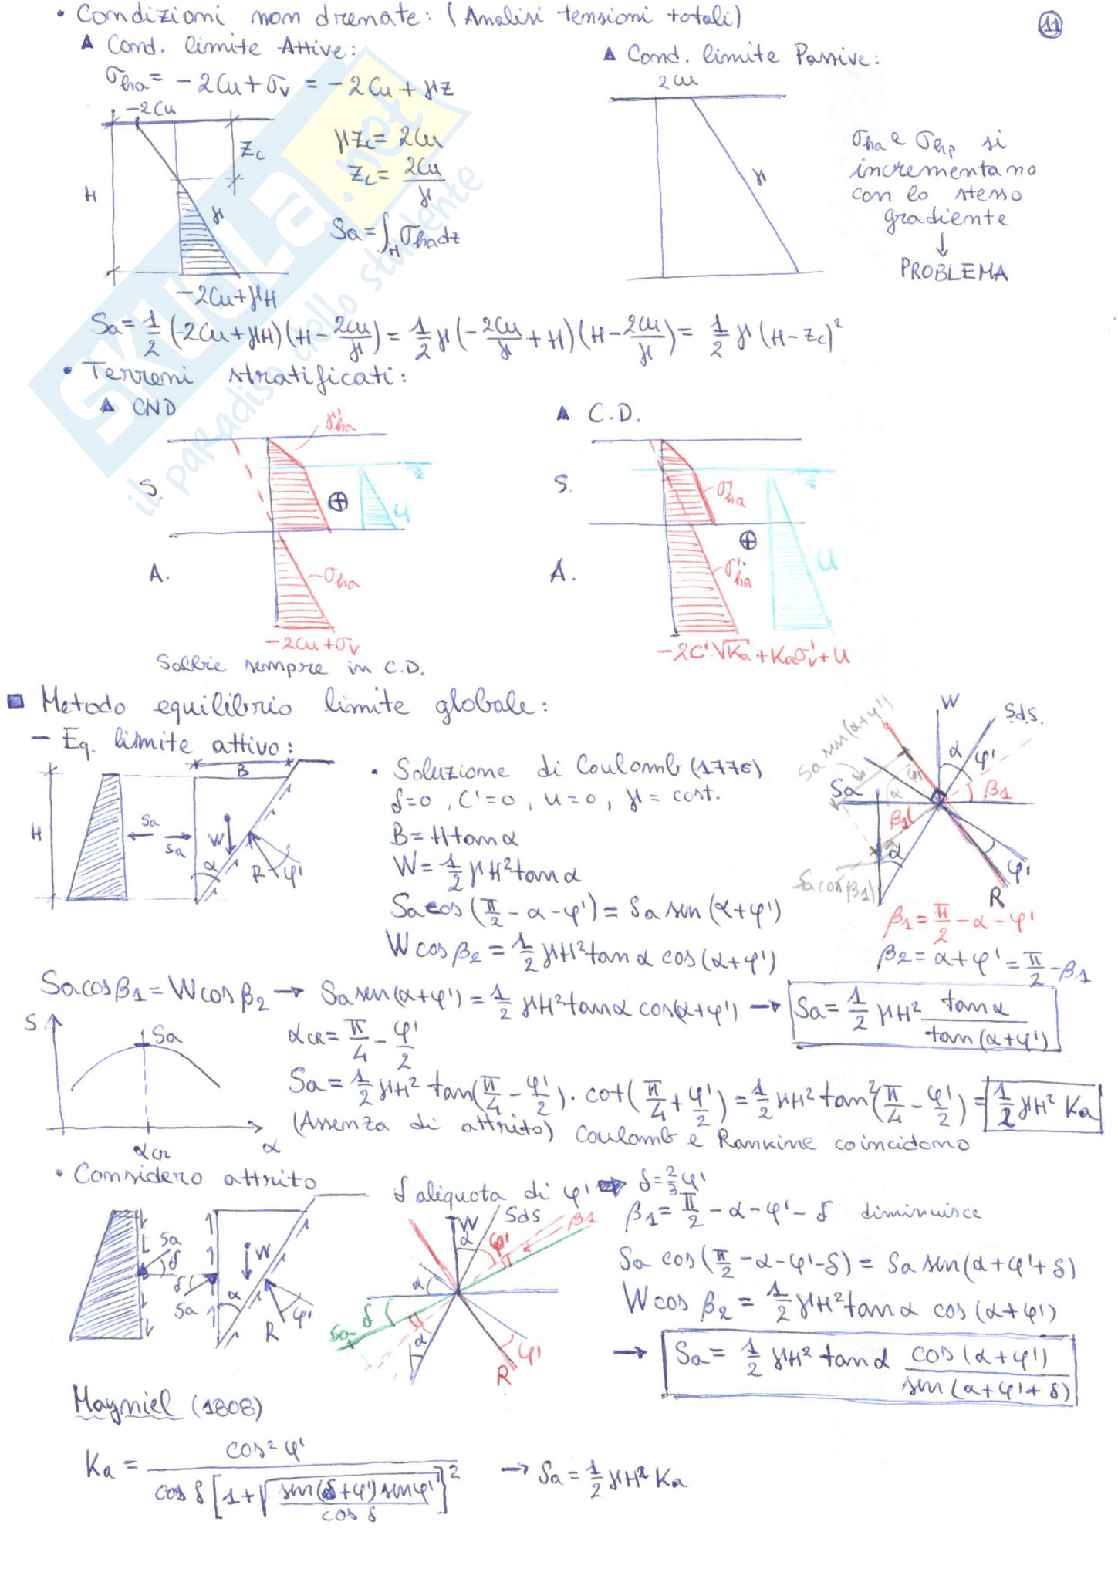 • Condizioni non drenate: (Analisi tensioni totali)
11
▲ Cond. limite Attive:
▲ Cond. limite Passive:
σha = -2Cu + σv = -2Cu + γz
-2Cu
2Cu
H
zc
γ
γzc = 2Cu
zc = 2Cu/γ
Sa = ∫H σha dz
-2Cu+γH
γ
σha e σhp si
incrementano
con lo stesso
gradiente
↓
PROBLEMA
Sa = 1/2 (-2Cu+γH)(H - 2Cu/γ) = 1/2 γ (-2Cu/γ + H)(H - 2Cu/γ) = 1/2 γ (H - zc)²
• Terreni stratificati:
▲ CND
▲ C.D.
σ'ha
S.
⊕
u
S.
σ'ha
⊕
A.
σha
A.
σ'ha
u
-2Cu+σv
-2C'√Ka + Kaσ'v + u
Sabbie sempre in C.D.
■ Metodo equilibrio limite globale:
– Eq. limite attivo:
B
H
Sa
Sa
W
α
R
φ'
• Soluzione di Coulomb (1776)
δ=0, C'=0, u=0, γ = cost.
B = H tan α
W = 1/2 γH² tan α
Sa cos (π/2 - α - φ') = Sa sen (α+φ')
W cos β2 = 1/2 γH² tan α cos (α+φ')
W
Sds.
Sa sen(α+φ')
α
φ'
Sa
β1
β1
α
Sa cos(β1)
R
φ'
β1 = π/2 - α - φ'
β2 = α+φ' = π/2 - β1
Sa cosβ1 = W cosβ2 → Sa sen(α+φ') = 1/2 γH² tanα cos(α+φ') → Sa = 1/2 γH² tanα/tan(α+φ')
S
Sa
αCR
α
αCR = π/4 - φ'/2
Sa = 1/2 γH² tan(π/4 - φ'/2) · cot(π/4 + φ'/2) = 1/2 γH² tan²(π/4 - φ'/2) = 1/2 γH² Ka
(Assenza di attrito) Coulomb e Rankine coincidono
• Considero attrito
δ aliquota di φ' → δ = 2/3 φ'
Sa
δ
δ
Sa
W
α
R
φ'
W
α
Sds
φ'
β1
α
δ
Sa
α
R
φ'
β1 = π/2 - α - φ' - δ diminuisce
Sa cos(π/2 - α - φ' - δ) = Sa sen(α+φ'+δ)
W cos β2 = 1/2 γH² tan α cos (α+φ')
→ Sa = 1/2 γH² tan α cos (α+φ')/sen (α+φ'+δ)
Mayniel (1808)
Ka = cos² φ' / cos δ [1+√(sen(δ+φ') senφ'/cos δ)]² → Sa = 1/2 γH² Ka
SKUOLA.net
il paradiso dello studente